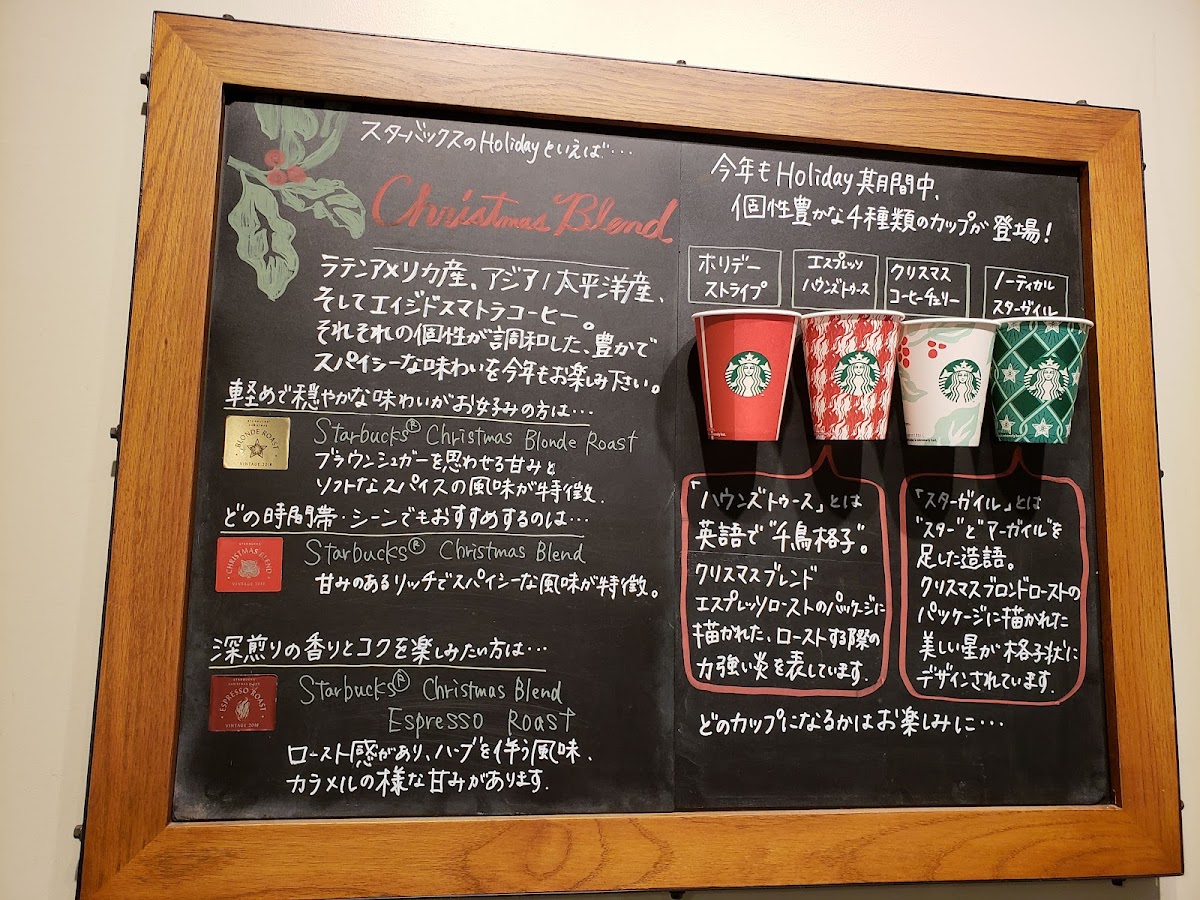 スターバックスのHolidayといえば…
Christmas Blend
ラテンアメリカ産、アジア/太平洋産、
そしてエイジドスマトラコーヒー。
それぞれの個性が調和した、豊かで
スパイシーな味わいを今年もお楽しみ下さい。
軽めで穏やかな味わいがお好みの方は…
BLONDE ROAST
VINTAGE 2018
Starbucks® Christmas Blonde Roast
ブラウンシュガーを思わせる甘みと
ソフトなスパイスの風味が特徴.
どの時間帯・シーンでもおすすめするのは…
CHRISTMAS BLEND
VINTAGE 2018
Starbucks® Christmas Blend
甘みのあるリッチでスパイシーな風味が特徴。
深煎りの香りとコクを楽しみたい方は…
ESPRESSO ROAST
VINTAGE 2018
Starbucks® Christmas Blend
Espresso Roast
ロースト感があり、ハーブを伴う風味、
カラメルの様な甘みがあります.
今年もHoliday期間中、
個性豊かな4種類のカップが登場!
ホリデー
ストライプ
エスプレッソ
ハウンズトゥース
クリスマス
コーヒーチェリー
ノーティカル
スターガイル
「ハウンズトゥース」とは
英語で"千鳥格子"。
クリスマスブレンド
エスプレッソローストのパッケージに
描かれた、ローストする際の
力強い炎を表しています.
「スターガイル」とは
"スター"と"アーガイル"を
足した造語。
クリスマスブロンドローストの
パッケージに描かれた
美しい星が格子状に
デザインされています.
どのカップになるかはお楽しみに…